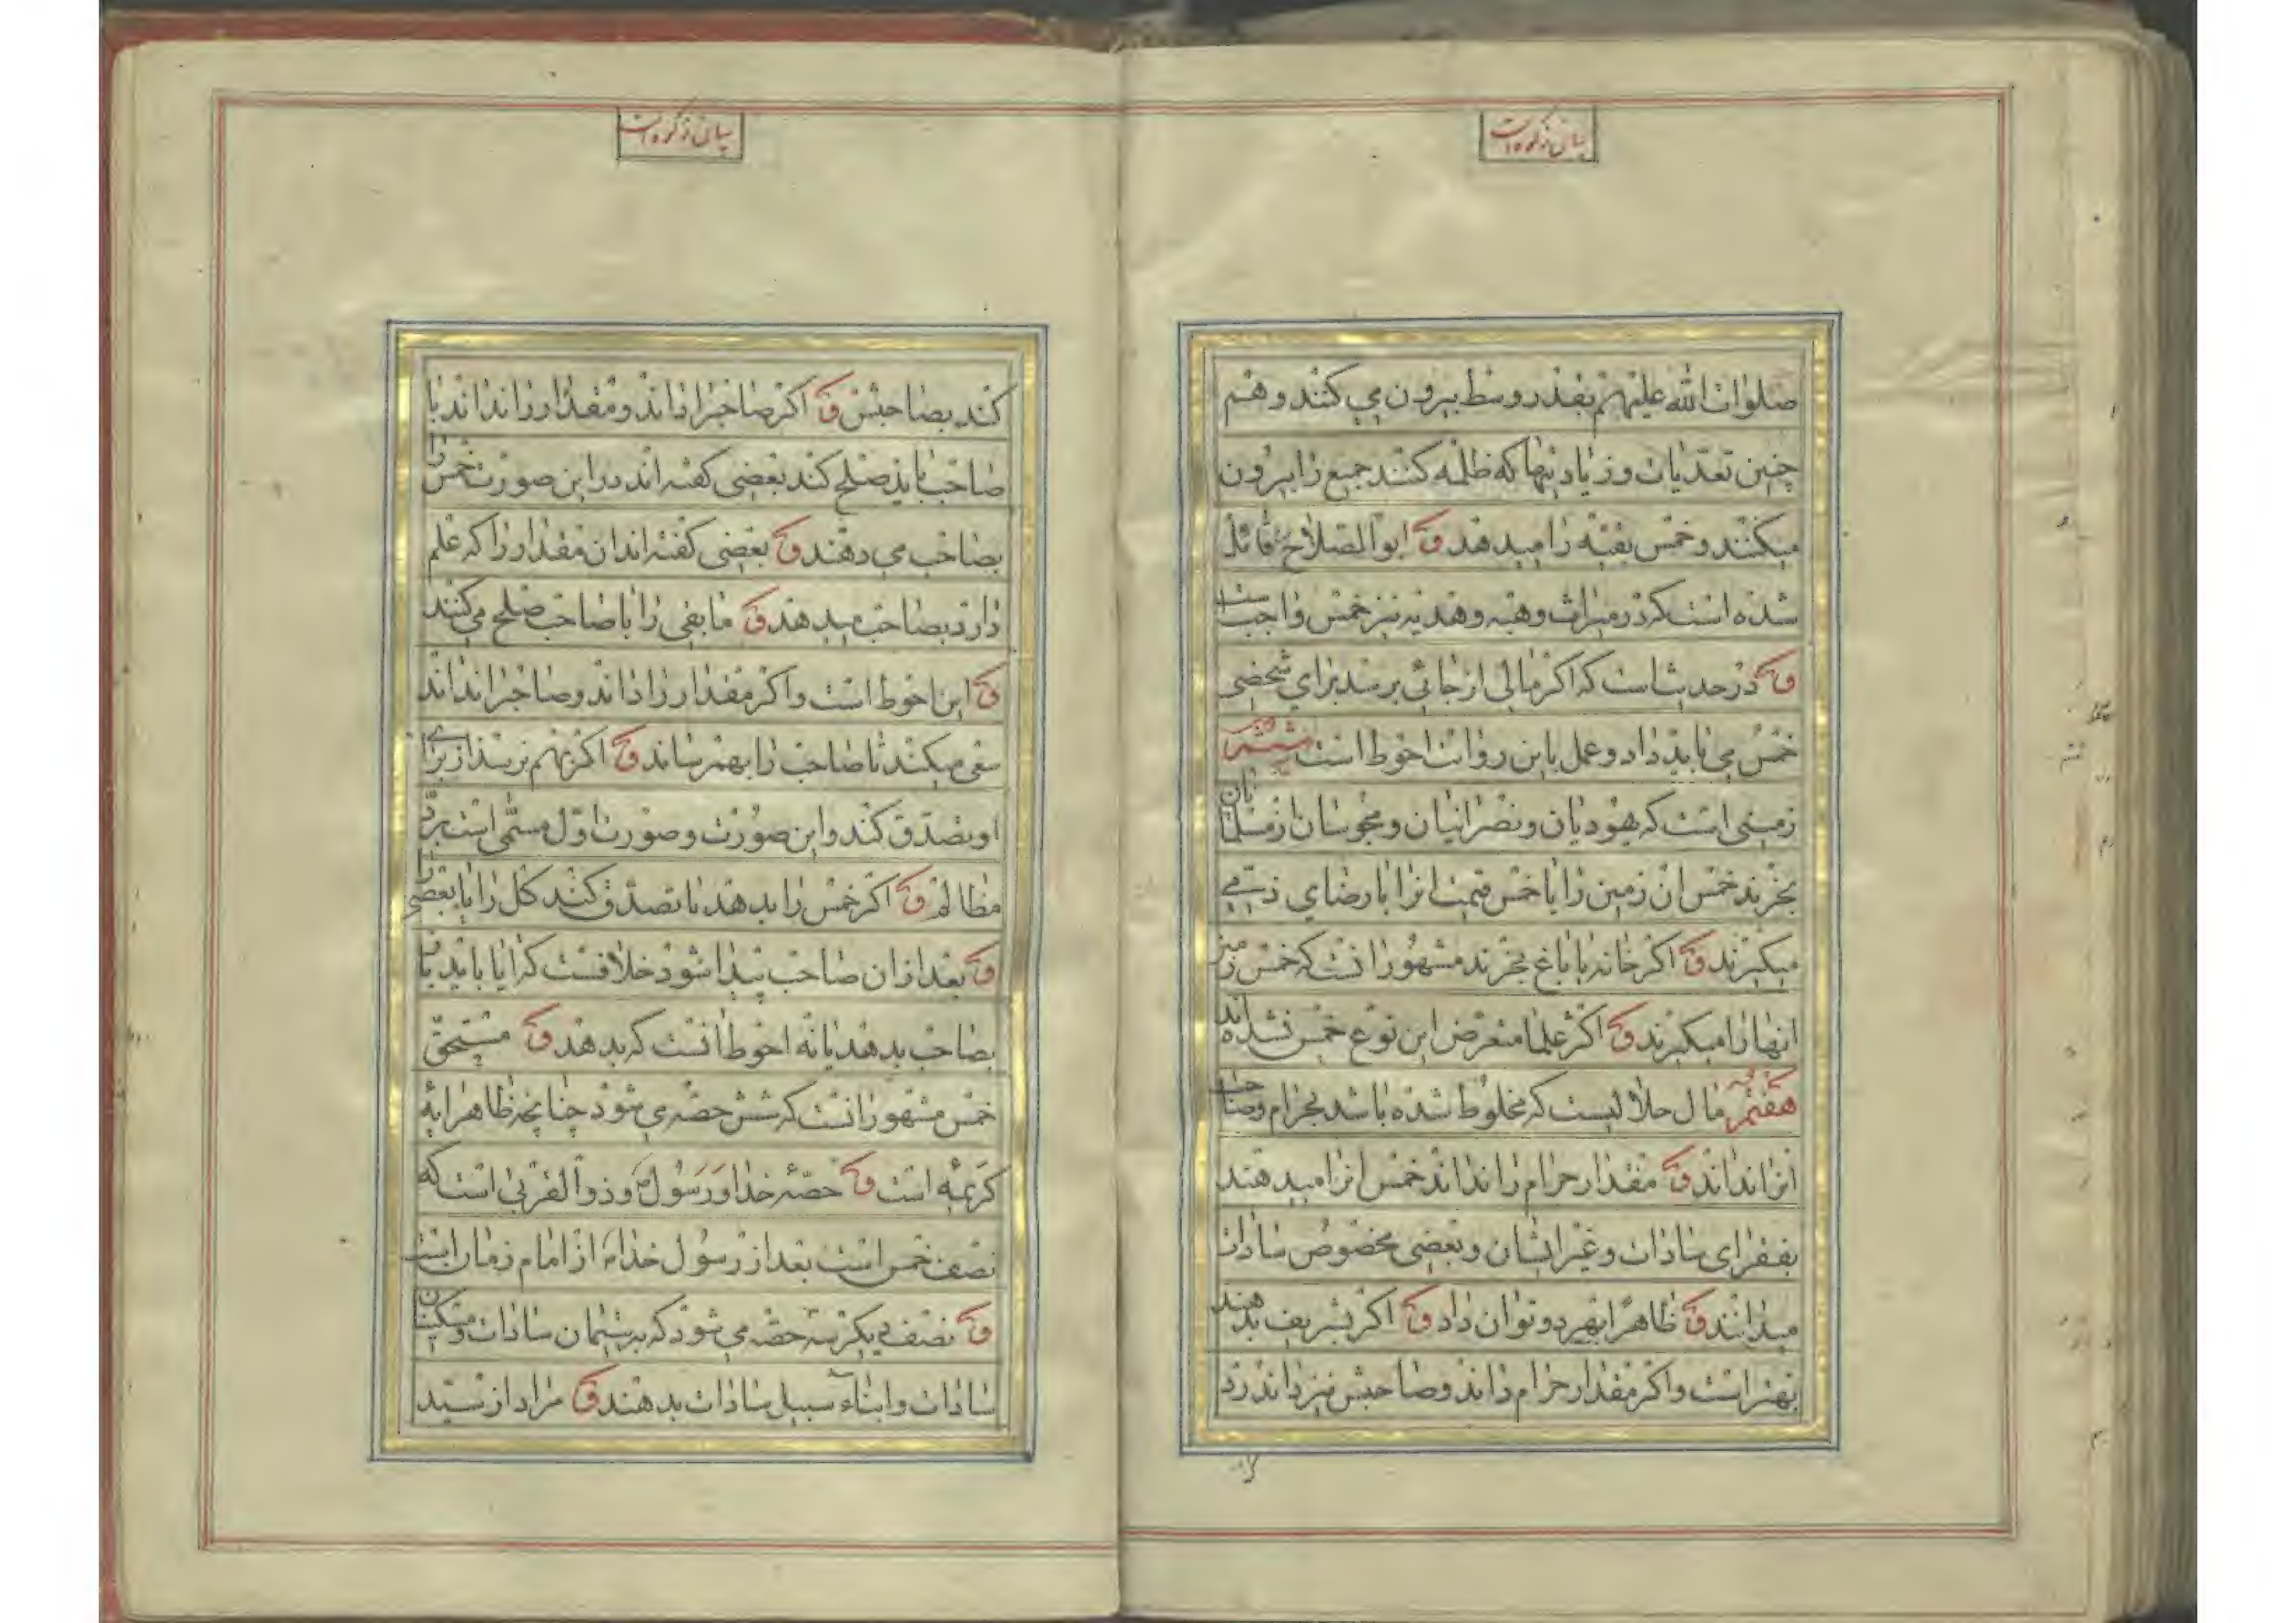 بیان زکوة است
صلوات الله علیهم بقدر وسط بیرون می کنند و هم
چنین تعدیات و زیادتیها که ظلمه کنند جمیع را بیرون
میکنند و خمس بقیه را میدهد و ابو الصلاح قائل
شده است که در میراث و هبه و هدیه نیز خمس واجب است
و در حدیث است که اکر مالی از جائی برسد برای شخصی
خمس می باید داد و عمل باین روایت احوط است ششم
زمینی است که یهودیان و نصرانیان و مجوسان از مسلمانان
بخرند خمس ان زمین را یا خمس قیمت انرا با رضای ذمی
میکیرند و اکر خانه یا باغ بخرند مشهور انست که خمس زمین
انها را میکیرند و اکثر علما متعرض این نوع خمس نشده اند
هفتم مال حلالیست که مخلوط شده باشد بحرام و صاحب
انرا نداند و مقدار حرام را نداند خمس انرا میدهند
بفقرای سادات و غیر ایشان و بعضی مخصوص سادات
میدانند و ظاهرا بهر دو توان داد و اکر بشریف بدهند
بهتر است و اکر مقدار حرام داند و صاحبش نیز داند رد
بیان زکوة است
کند بصاحبش و اکر صاحبرا داند و مقدار را نداند با
صاحب باید صلح کند بعضی کفته اند در این صورت خمس را
بصاحب می دهند و بعضی کفته اند ان مقدار را که علم
دارد بصاحب میدهد و مابقی را با صاحب صلح می کنند
و این احوط است و اکر مقدار را داند و صاحبرا نداند
سعی میکند تا صاحب را بهم رساند و اکر بهم نرسد از برای
او تصدق کند و این صورت و صورت اول مسمی است برد
مظالم و اکر خمس را بدهد یا تصدق کند کل را یا بعضی را
و بعد از ان صاحب پیدا شود خلافست که ایا باید باز
بصاحب بدهد یا نه احوط انست که بدهد و مستحق
خمس مشهور انست که شش حصه می شود چنانچه ظاهر ایه
کریمه است و حصه خدا و رسول و ذوالقربی است که
نصف خمس است بعد از رسول خدا از امام زمان است
و نصف دیکر سه حصه می شود که به یتیمان سادات و مسکینان
سادات و ابناء سبیل سادات بدهند و مراد از سید